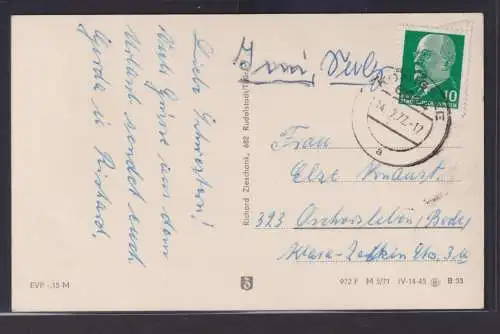 Liebe Schwestern!
Viele Grüße aus dem
Urlaub sendet euch
Gerda u. Richard.
Richard Zieschank, 682 Rudolstadt/Thür.
10
14. 7. 72 - 17
a
Frau
Else Knaust
323 Oschersleben/Bode
Klara-Zetkin Str. 3a
EVP -.15 M
972 F M 5/71 IV-14-45 B 35